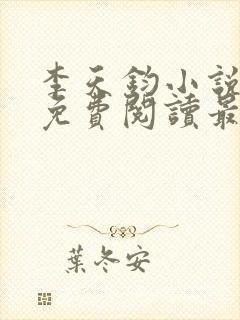 李天鈞小說
免費閱讀最
葉冬安